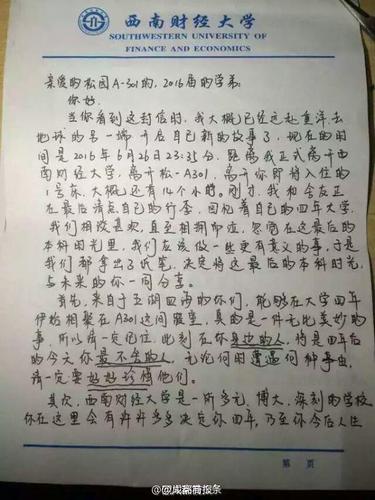 西南财经大学
SOUTHWESTERN UNIVERSITY OF
FINANCE AND ECONOMICS
亲爱的松园A-301的,2016届的学弟:
你好。
当你看到这封信时,我大概已经远赴重洋,去
地球的另一端开启自己新的故事了,现在的时
间是2016年6月26日23:35分,距离我正式离开西
南财经大学,离开松-A301,离开你即将入住的
1号床,大概还有14个小时。刚才,我和舍友正
在最后清点自己的行李,回忆着自己的四年大学,
我们相视是哭,直至相拥而泣,忽觉在这最后的
本科时光里,我们应该做一些更有意义的事,于是
我们都拿出了纸笔,决定将这最后的本科时光,
与未来的你一同分享。
首先,来自于五湖四海的你们,能够在大学四年
伊始相聚在A301这间寝室,真的是一件无比美妙的
事,所以请一定记住,此刻在你身边的人,将是四年后
的今天你最不舍的人,无论何时遭遇何种事由,
请一定要好好珍惜他们。
其次,西南财经大学是一所多元、博大、深刻的学校,
你在这里会有许许多多决定你四年,乃至你今后人生
第 页